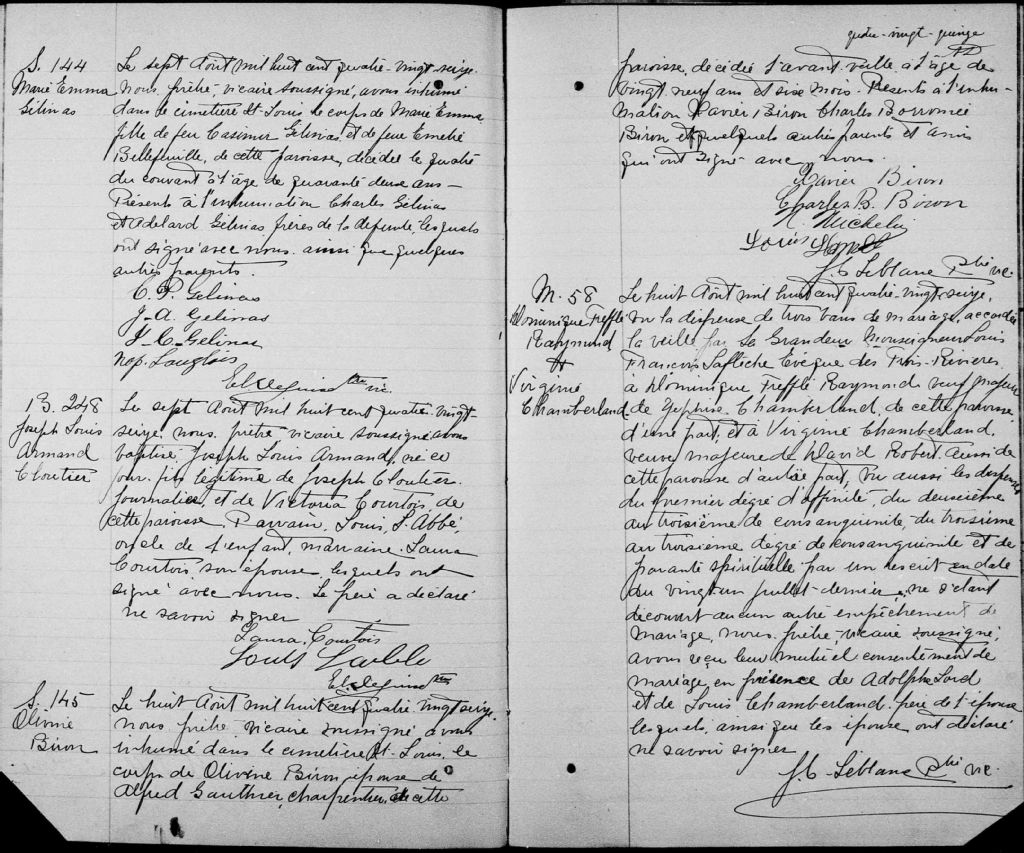 S. 144
Marie Emma
Gélinas
Le sept Août mil huit cent quatre-vingt-seize.
nous, prêtre, vicaire soussigné, avons inhumé
dans le cimetière St. Louis le corps de Marie Emma
fille de feu Casimir Gélinas et de feue Emélie
Bellefeuille, de cette paroisse, décédée le quatre
du courant à l'âge de quarante deux ans—
Présents à l'inhumation Charles Gélinas
et Adelard Gélinas, frères de la défunte, lesquels
ont signé avec nous ainsi que quelques
autres parents.
C. P. Gelinas
J-A. Gelinas
Gelinas
Nap. Langlois
Ptre vic.
B. 248
Joseph Louis
Armand
Cloutier
Le sept Août mil huit cent quatre-vingt-
seize, nous, prêtre vicaire soussigné avons
baptisé Joseph Louis Armand, né ce
jour, fils légitime de Joseph Cloutier,
journalier, et de Victoria Courtois, de
cette paroisse. Parrain, Louis, L'Abbé,
oncle de l'enfant, marraine Laura
Courtois, son épouse, lesquels ont
signé avec nous. Le père a déclaré
ne savoir signer
Laura Courtois
Louis Labbé
Ptre
S. 145
Olivine
Biron
Le huit Août mil huit cent quatre-vingt-seize,
nous, prêtre, vicaire soussigné avons
inhumé dans le cimetière St. Louis, le
corps de Olivine Biron, épouse de
Alfred Gauthier, charpentier, de cette
quatre-vingt-quinze
paroisse, décédée l'avant veille à l'âge de
vingt neuf ans et six mois. Présents à l'inhu-
mation Xavier Biron Charles Borromée
Biron et quelques autres parents et amis
qui ont signé avec nous.
Xavier Biron
Charles B. Biron
Michelin
Louis
J. E. Leblanc Ptre vic.
M. 58
Dominique Trefflé
Raymond
+
Virginie
Chamberland
Le huit Août mil huit cent quatre-vingt-seize,
vu la dispense de trois bans de mariage, accordée
la veille par Sa Grandeur Monseigneur Louis
François Laflèche Evêque des Trois-Rivières
à Dominique Trefflé Raymond veuf majeur
de Zéphise Chamberland, de cette paroisse
d'une part, et à Virginie Chamberland,
veuve majeure de David Robert aussi de
cette paroisse d'autre part, vu aussi les dispenses
du premier degré d'affinité, du deuxième
au troisième de consanguinité, du troisième
au troisième degré de consanguinité et de
parenté spirituelle par un rescrit en date
du vingt un juillet dernier, ne s'étant
découvert aucun autre empêchement de
mariage, nous, prêtre, vicaire soussigné,
avons reçu leur mutuel consentement de
mariage, en présence de Adolphe Lord
et de Louis Chamberland, père de l'épouse
lesquels, ainsi que les époux ont déclaré
ne savoir signer
J. E. Leblanc Ptre vic.